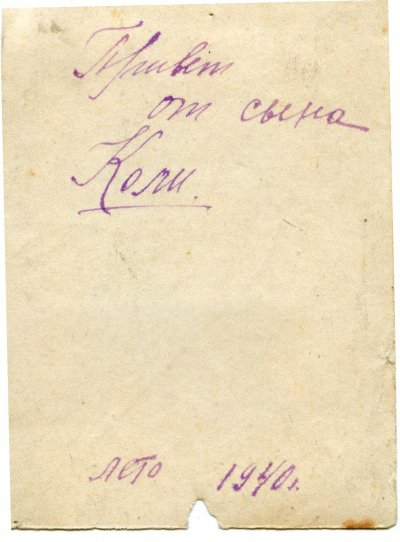 Привет
от сына
Коли.
лето 1940г.